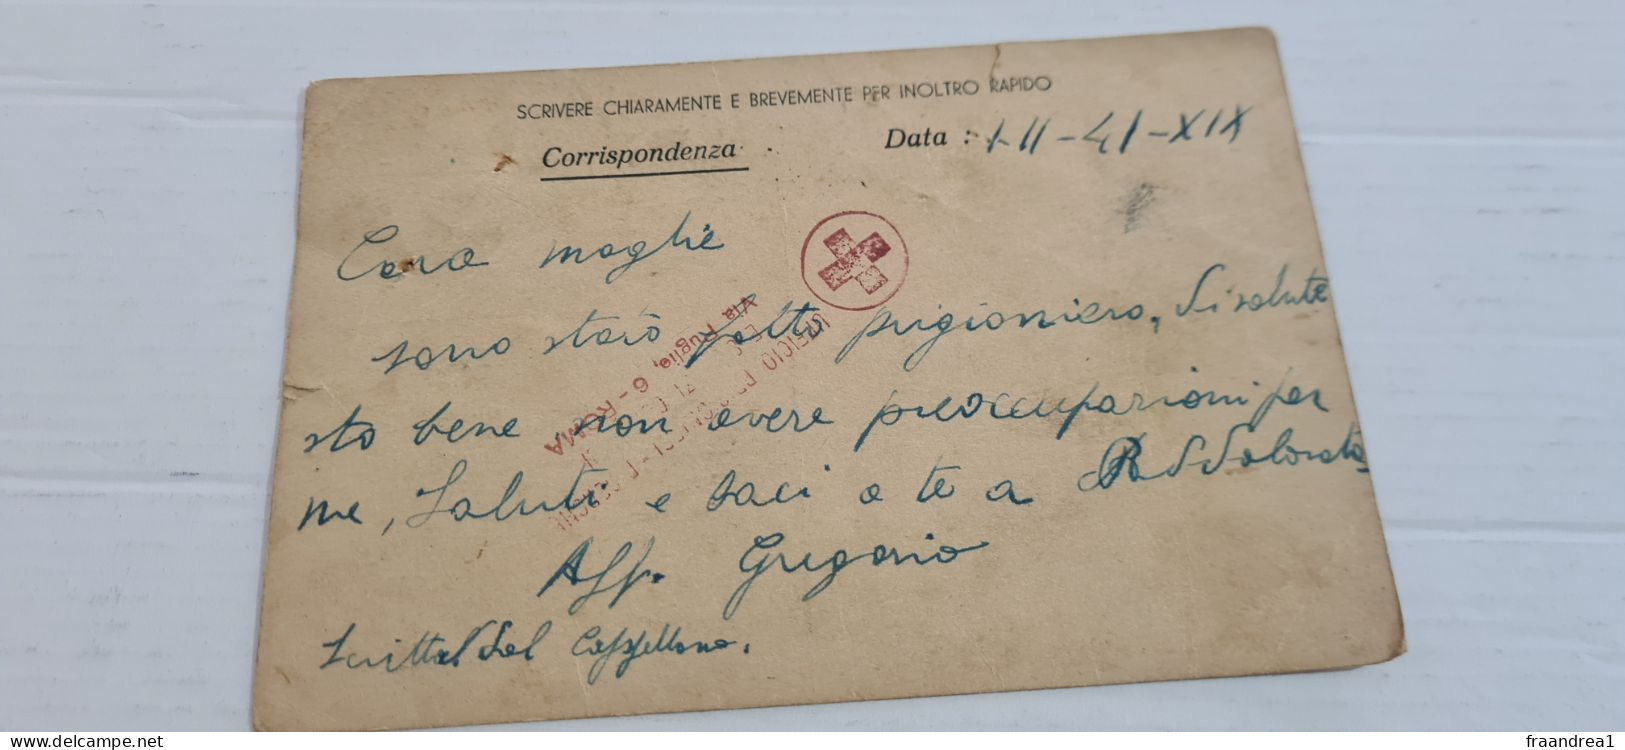 SCRIVERE CHIARAMENTE E BREVEMENTE PER INOLTRO RAPIDO
Corrispondenza
Data : 1-II-41-XIX
Cara moglie
sono stato fatto prigioniero, di salute
sto bene non avere preoccupazioni per
me, saluti e baci a te a Addolorata
Aff. Gregorio
Scritta dal Cappellano.
UFFICIO
Via Puglie, 6 - ROMA
www.delcampe.net
fraandrea1